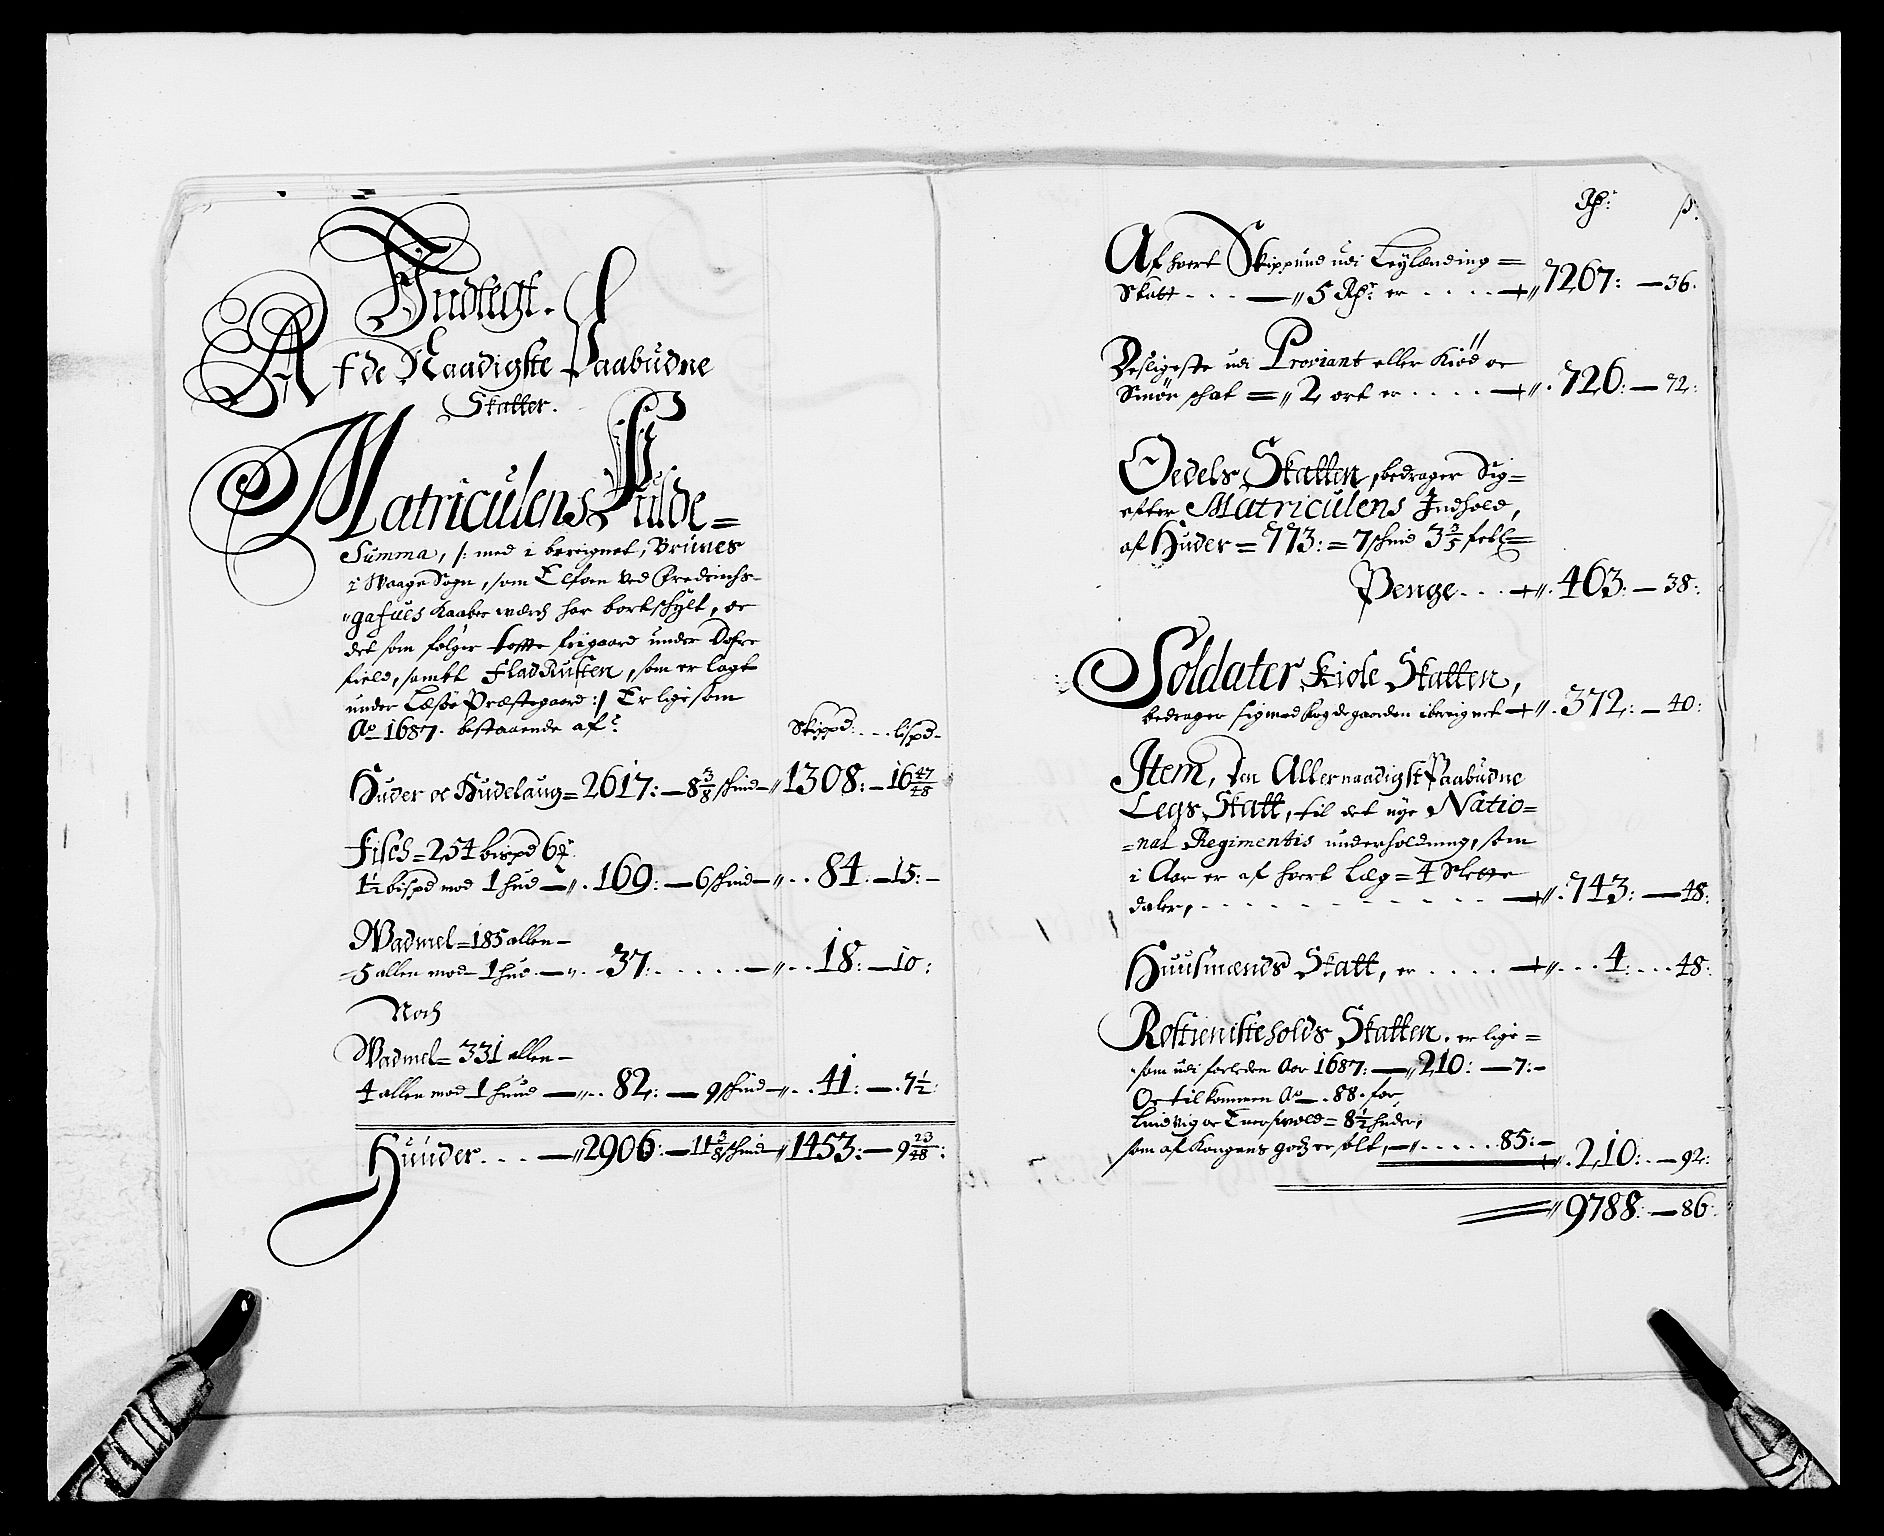 Indtegt.
Af de Naadigste Paabudne
Skatter.
Matriculens Fulde=
Summa, /: med i bereignet, Brunes
i Waage Sogn, som Elfven ved Fredrichs-
gafues Kaaber wærch har bortschylt, oc
det som følger Tofte frigaard under Dofre
field, sambt FladRusten, som er lagt
under Læssøe Præstegaard :/ Er ligesom
Ao 1687. bestaaende af:
Skippd: . . . lispd-
Huder oc Hudelaug= 2617: — 8 3/8 schind — 1308: — 16 47/48
Fisch= 254 bispd 6
1 1/2 bispd mod 1 hud — 169: — 6 schind — 84: — 15: -
Wadmel= 185 allen —
5 allen mod 1 hud — 37: . . . . — 18: — 10:
Noch
Wadmel= 331 allen —
4 allen mod 1 huud — 82: — 9 schind — 41: — 7 1/2:
Huuder . . . — 2906: — 11 3/8 schind — 1453: — 9 23/48:
Rdr: ß:
Af hvert Skippund udi Leylænding=
Skatt - . . — 5 Rdr er . . . . — 7267: — 36.
Desligeste udi Proviant eller Kiød oc
Smør schat = 2 ort er . . . . — 726: — 72:
Oedels Skatten, bedrager Sig=
efter Matriculens Indhold,
af Huder= 773: = 7 schind 3 3/5
Penge . . . — 463: — 38:
Soldater Kiole Skatten,
bedrager sig med bøygdegaarden ibereignet — 372: — 40:
Item, den Allernaadigst Paabudne
Legs Skatt, til det nye Natio=
=nal Regimentis underholdning, som
i Aar er af hvert Læg= 4 Slette
daler, . . . . . — 743: — 48:
Huusmænds Skatt, er . . . . — 4: . . . 48:
Rostienisteholds Skatten. er lige=
som udi forleden Aar 1687: — 210: — 7: -
Oc tilkommen Ao — 88. for
Ludvig oc = 8 1/2 huder,
som af Kongens godz er solt, — . . . . . 85: —
210: — 92:
9788: — 86: